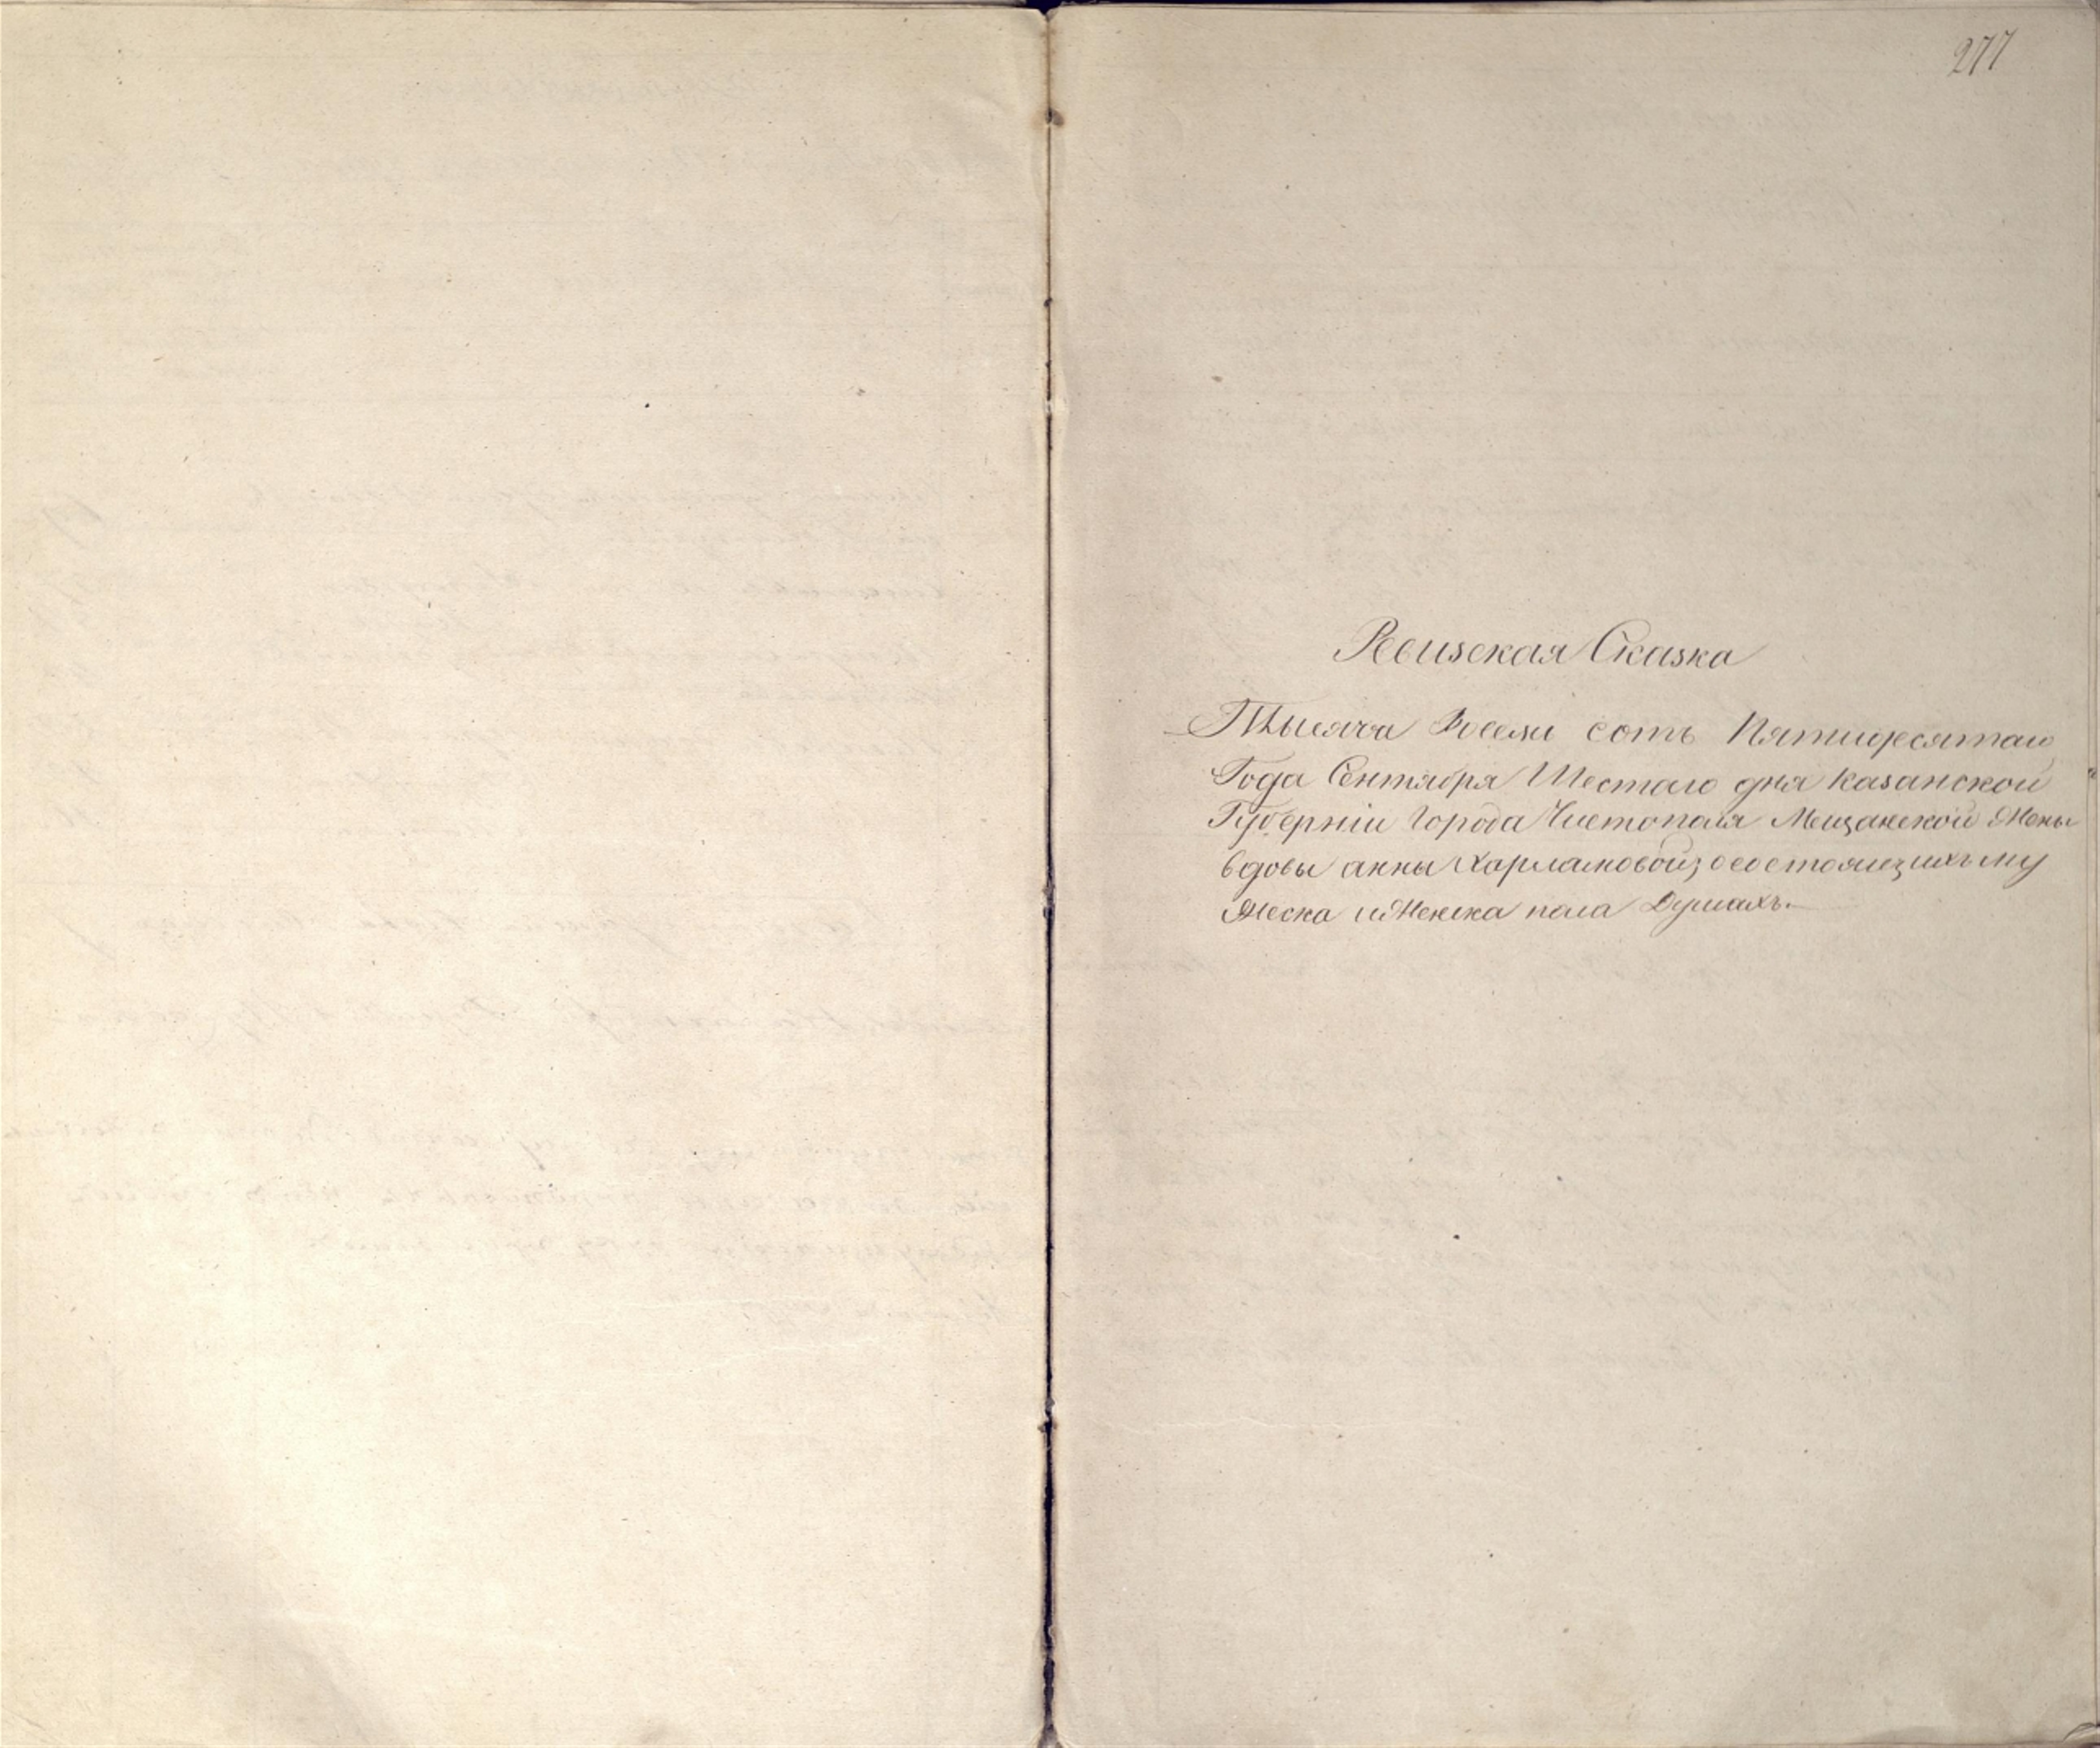 277
Ревизская Сказка
Тысяча Восем сотъ Пятидесятаго
Года Сентября Шестаго дня Казанской
Губерніи Города Чистополя Мещанской Жены
вдовы анны Харламовой, осостоящихъ му
жеска и Женска пола Душахъ.